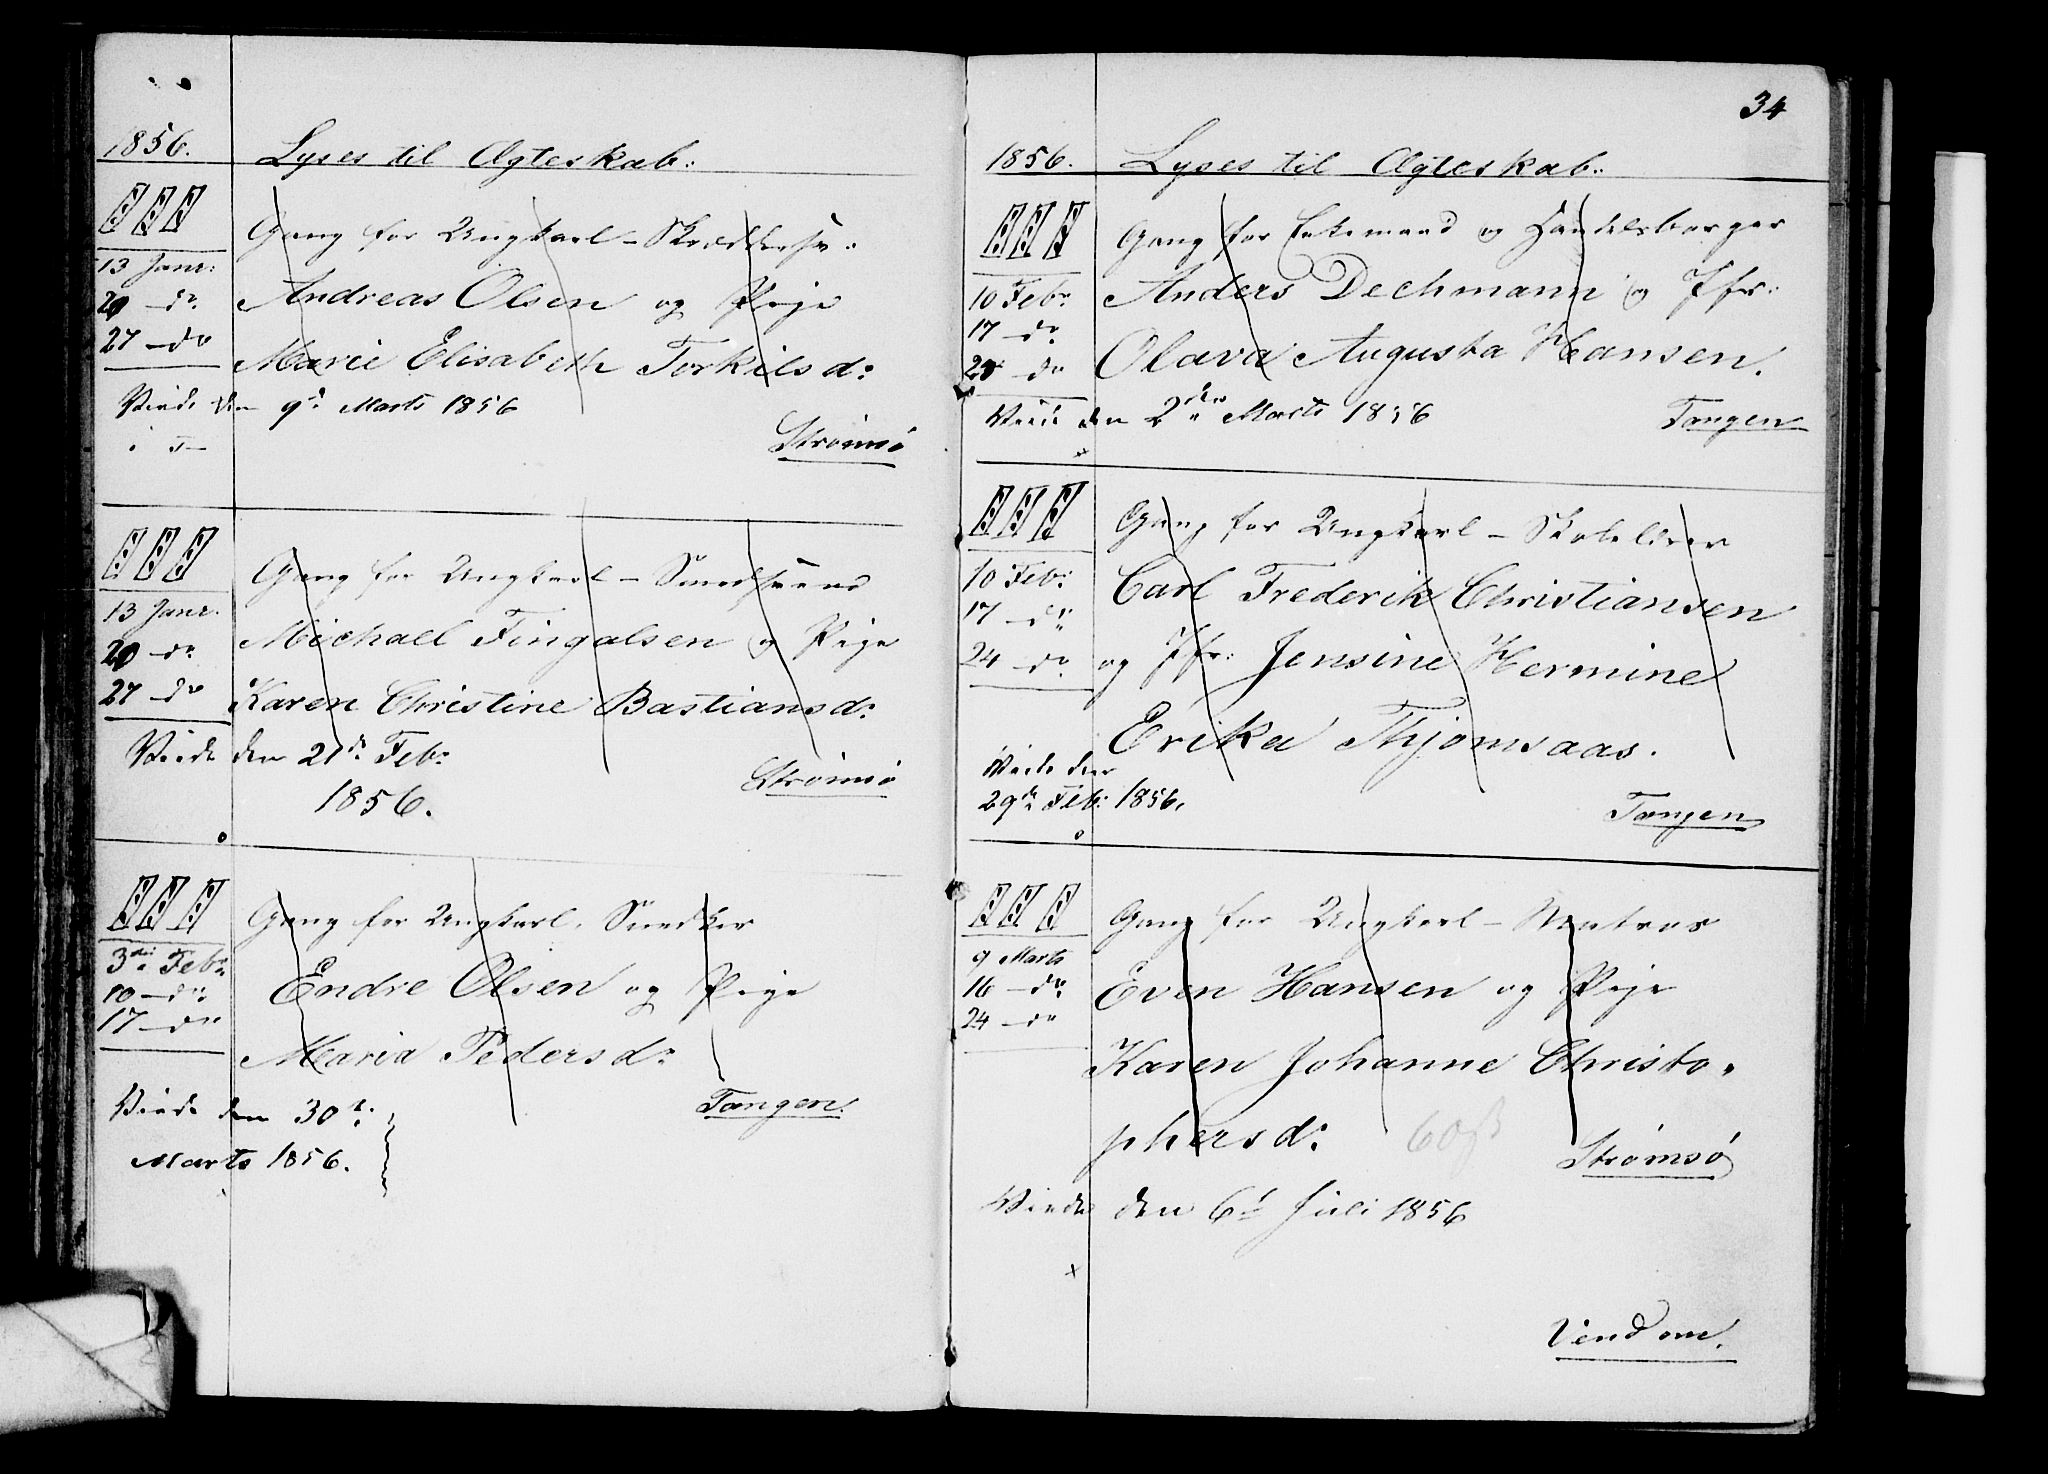 1856. Lyses til Ægteskab:
III Gang for Ungkarl - Skræddersv:
13 Janr: Andreas Olsen og Pige
20 do
27 do Marie Elisabeth Torkilsd:
Viede den 9d Marts 1856
Strömsö
III Gang for Ungkarl - Smedsvend
13 Janr. Michael Fingalsen og Pige
20 do
27 do Karen Christine Bastiansd:
Viede den 21de Feb:
1856. Strömsö
III Gang for Ungkarl, Snedker
3die Feb: Endre Olsen og Pige
10 do
17 do Maria Pedersd:
Viede den 30t: Tangen.
Marts 1856.
34
1856. Lyses til Ægteskab:
III Gang for Enkemand og Handelsborger
10 Feb: Anders Dechmann og Jfr:
17 do
do Olava Augusta Hansen.
Viede den 2den Marts 1856 Tangen
III Gang for Ungkarl - Skolelærer
10 Feb: Carl Frederik Christiansen
17 do
24 do og Jfr: Jensine Hermine
Erika Thjomsaas.
Viede den
29de Feb: 1856. Tangen
III Gang for Ungkarl - Matros
9 Marts
16 do Even Hansen og Pige
24 do
Karen Johanne Christo-
phersd: 60
Strømsø
Viede den 6t Juli 1856
Vend om.